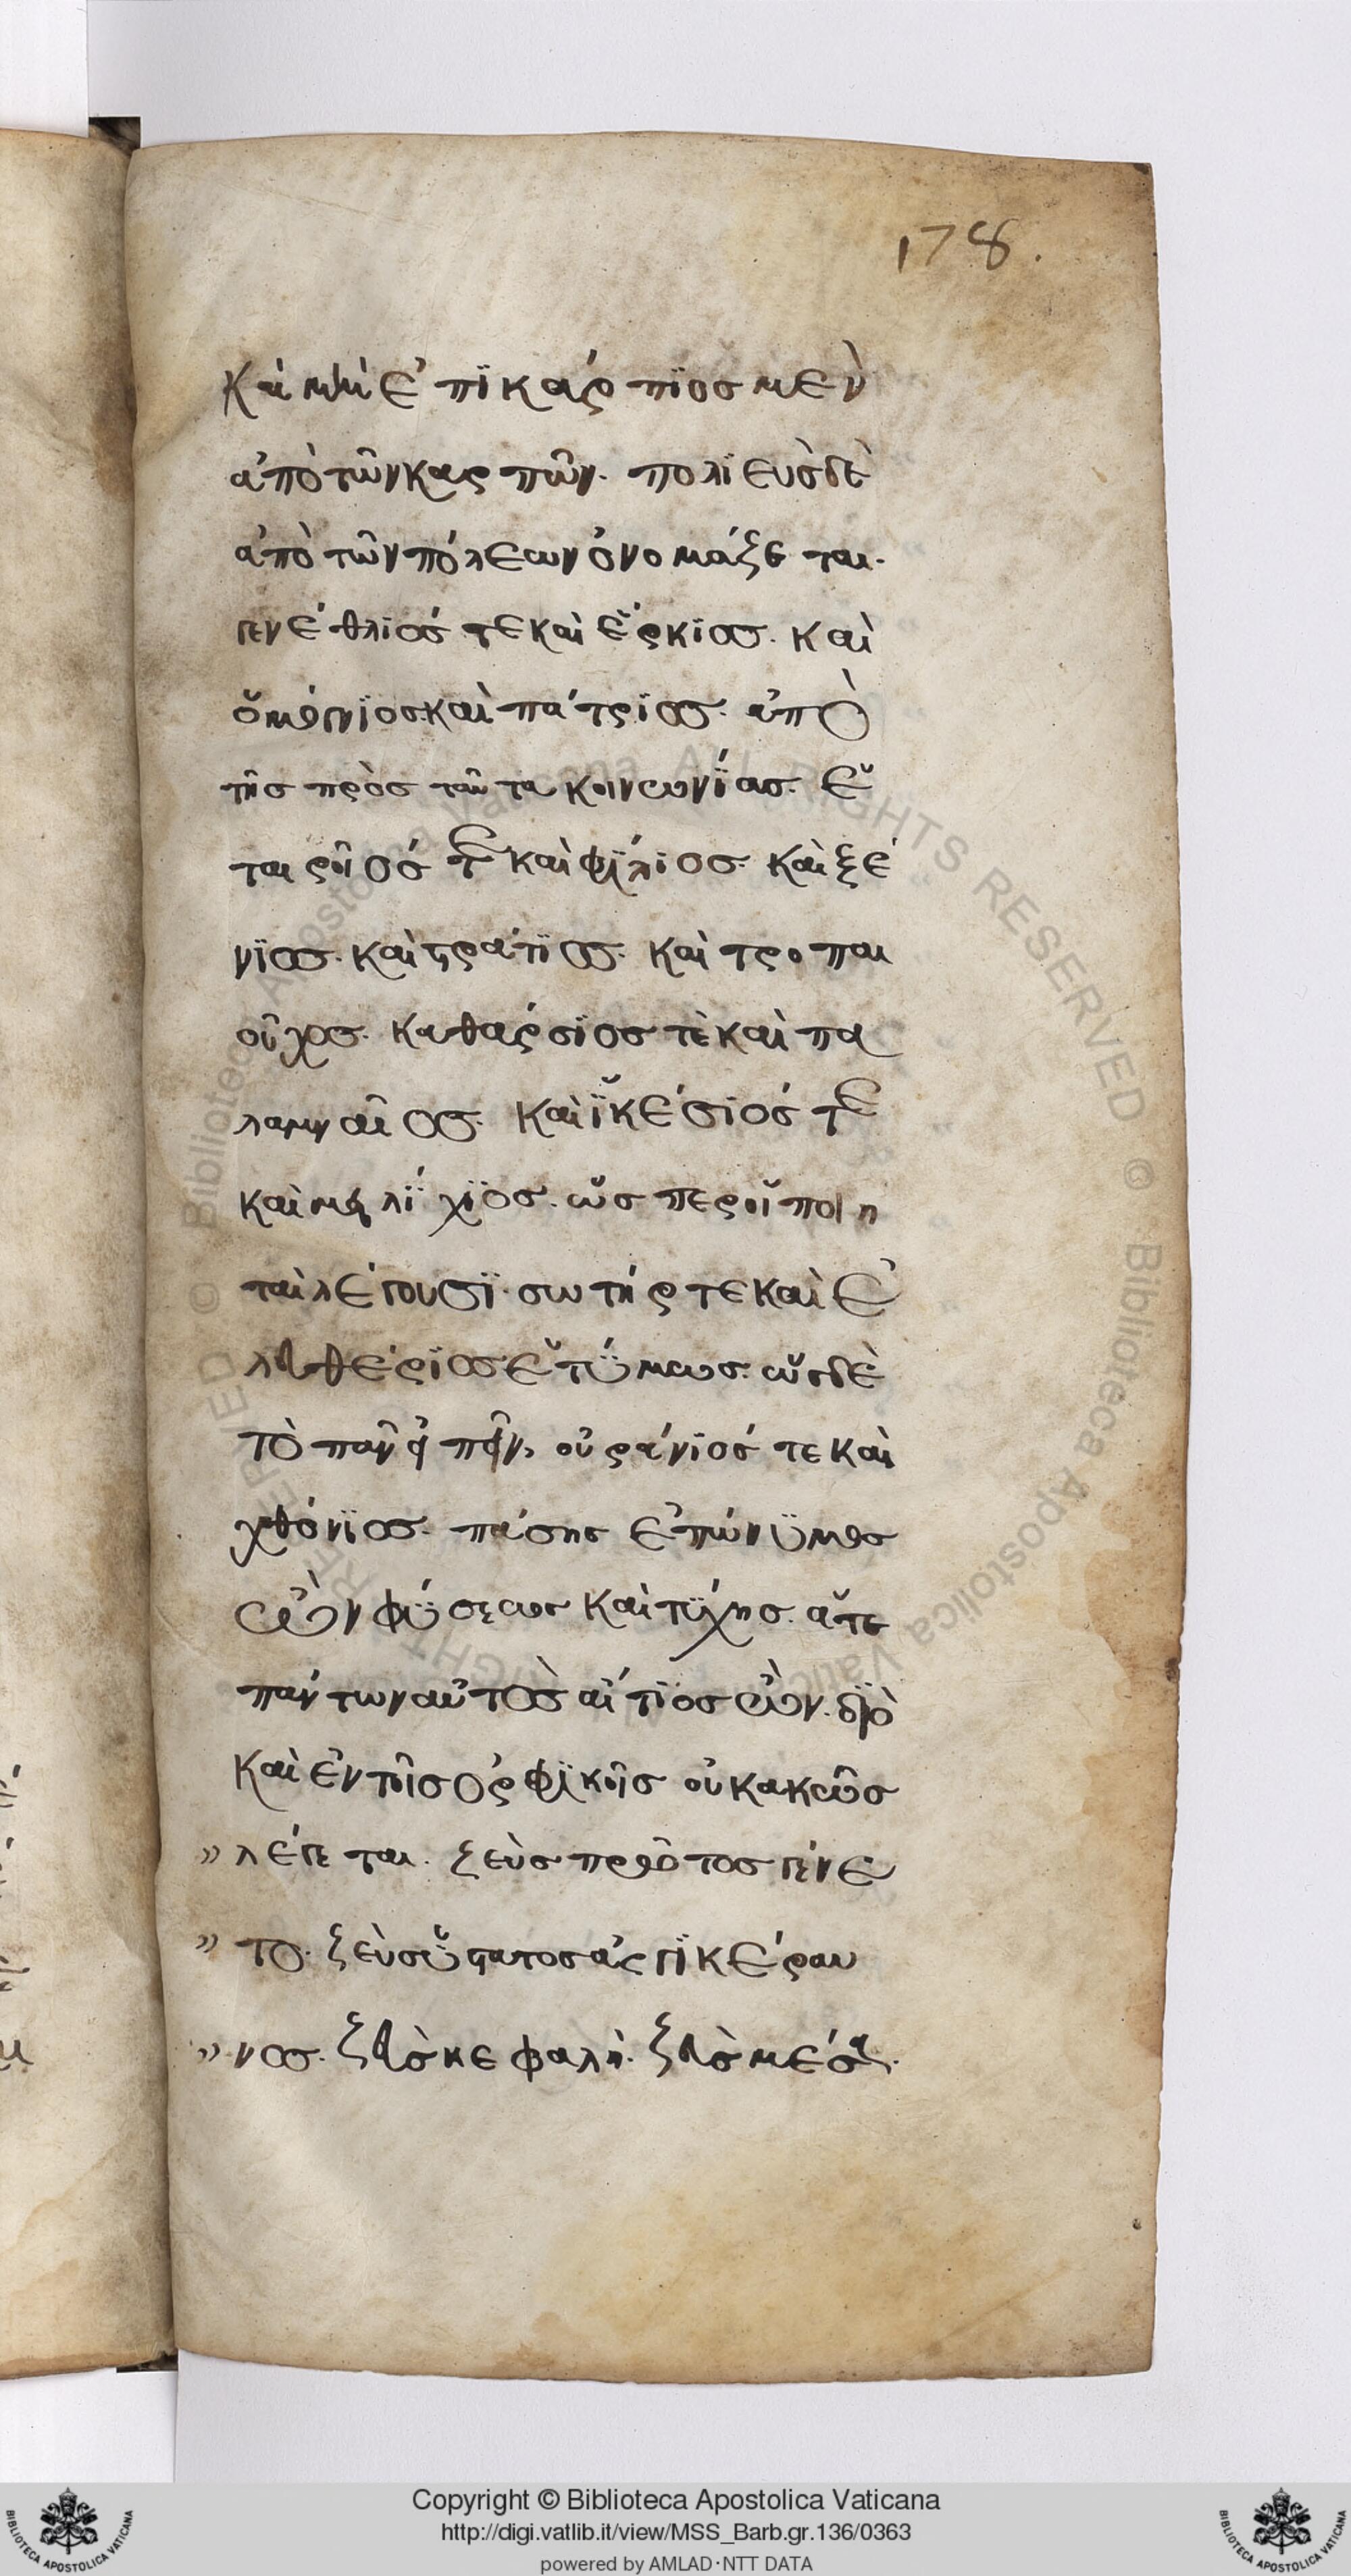 178.
Καὶ μὴν ἐπικάρπιος μὲν
ἀπὸ τῶν καρπῶν. πολιεὺς δὲ
ἀπὸ τῶν πόλεων ὀνομάζεται.
γενέθλιός τε καὶ ἕρκιος. καὶ
ὁμόγνιος. καὶ πάτριος. ἀπὸ
τῆς πρὸς ταῦτα κοινωνίας. ἑ
ταιρεῖός τε καὶ φίλιος. καὶ ξέ
νιος. καὶ στράτιος. καὶ τροπαι
οῦχος. καθάρσιος τὲ καὶ πα
λαμναῖος. καὶ ἱκέσιός τε
καὶ μειλίχιος. ὥσπερ οἱ ποιη
ταὶ λέγουσι. σωτήρ τε καὶ ἐ
λευθέριος ἑτύμως. ὡς δὲ
τὸ πᾶν εἰπεῖν, οὐράνιός τε καὶ
χθόνιος. πάσης ἐπώνυμος
ὢν φύσεως καὶ τύχης. ἅτε
πάντων αὐτὸς αἴτιος ὤν. διὸ
καὶ ἐν τοῖς Ὀρφικοῖς οὐ κακῶς
" λέγεται. ζεὺς πρῶτος γένε
" το. ζεὺς ὕστατος ἀργικέραυ
" νος. ζεὺς κεφαλὴ. ζεὺς μέσα.
Copyright © Biblioteca Apostolica Vaticana
http://digi.vatlib.it/view/MSS_Barb.gr.136/0363
powered by AMLAD·NTT DATA